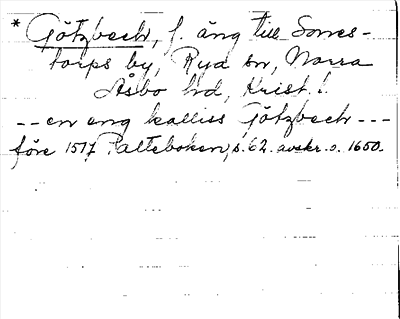 * Götzbech, f. äng till Somes-
torps by, Rya sn, Norra
Åsbo hd, Krist. l.
-- en eng kalliss Götzbech ---
före 1517 Palteboken, s. 62. avskr. o. 1650.